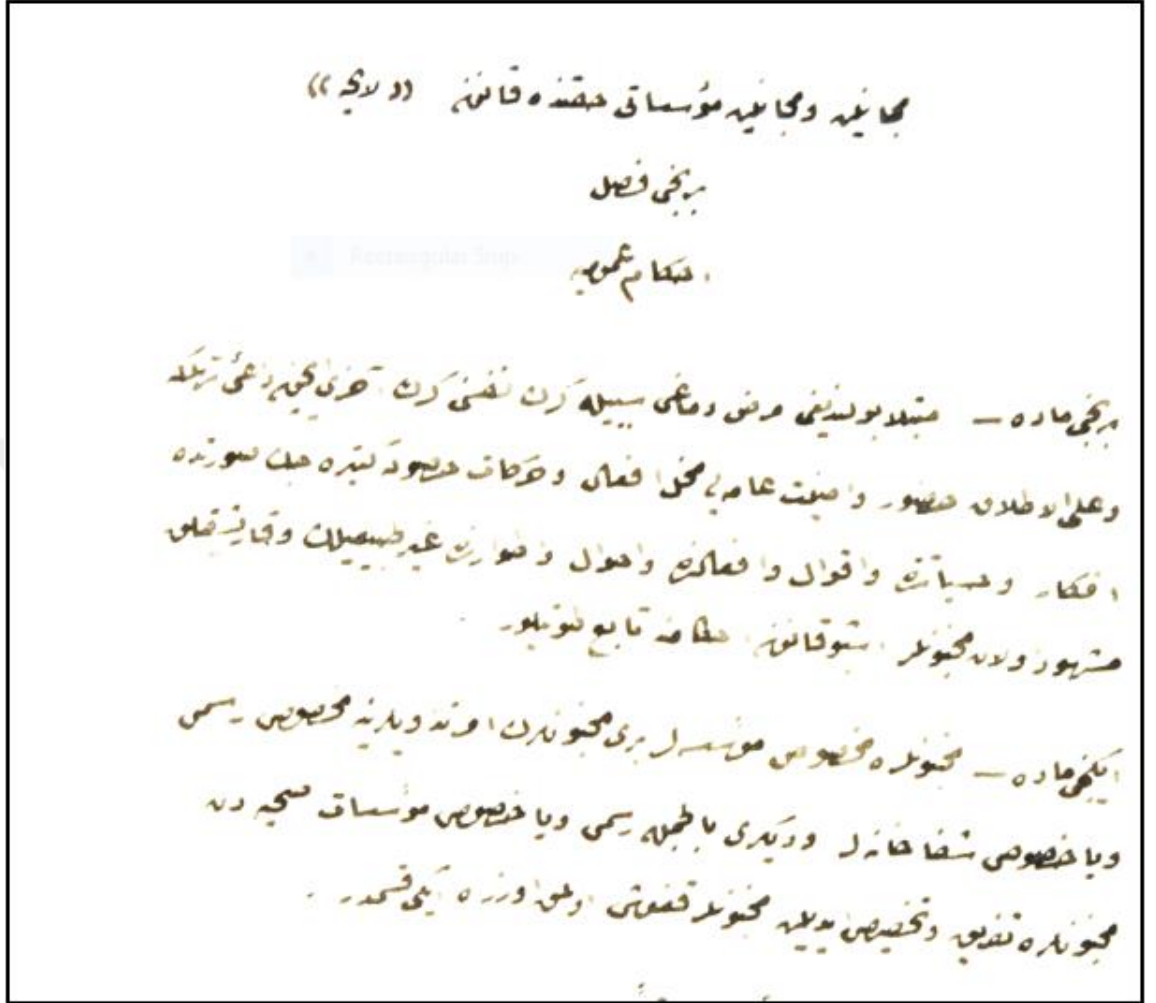 مجانين ومجانين مؤسساتى حقنده قانون ((لايحه))
برنجى فصل
احكام عموميه
برنجى ماده — مبتلا بولنديغى مرض دماغى سببيله كرك نفسى كرك آخرى ايچون داعئ تهلكه
وعلى الاطلاق حضور وامنيت عامه يى مخل افعال وحركات حصوله كتيره جك صورتده
افكار وحسياتنده واقوال وافعالنده واحوال واطوارنده غير طبيعيلك وقايتسزلق
مشهود اولان مجنونلر اشبو قانون احكامنه تابع طوتيلور.
ايكنجى ماده — مجنونلره مخصوص مؤسسه لر برى مجنونلرك امر تداويلرينه مخصوص رسمى
ويا خصوصى شفاخانه لر وديكرى بالجمله رسمى ويا خصوصى مؤسسات صحيه دن
مجنونلره تفريق وتخصيص ايديلن مجنونلر قغوشى اولمق اوزره ايكى قسمدر.